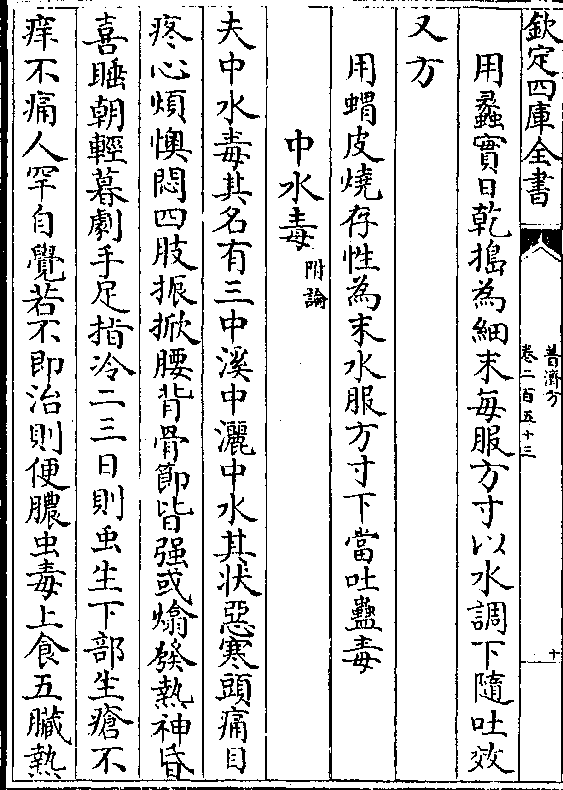 欽定四庫全書
普濟方
卷二百五十三
十
用蠡實日乾搗為細末每服方寸以水調下隨吐效
又方
用蝟皮燒存性為末水服方寸下當吐蠱毒
中水毒附論
夫中水毒其名有三中溪中灑中水其状惡寒頭痛目
疼心煩懊悶四肢振掀腰背骨節皆强或熻發熱神昏
喜睡朝輕暮劇手足指冷二三日則虫生下部生瘡不
痒不痛人罕自覺若不即治則便膿虫毒上食五臟熱